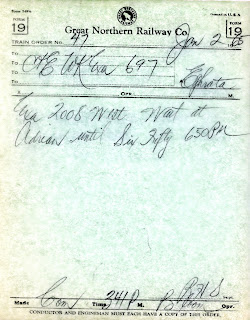 FORM 19
Great Northern Railway Co.
FORM 19
TRAIN ORDER No. 47 Jan 2
TO C&E Wk Exa 697
TO
TO Ephrata
Opr. M.
Exa 2008 West Wait at
Adrian until Six Fifty 650PM
RHS
Made Com Time 341 P M. Opr.
CONDUCTOR AND ENGINEMAN MUST EACH HAVE A COPY OF THIS ORDER.